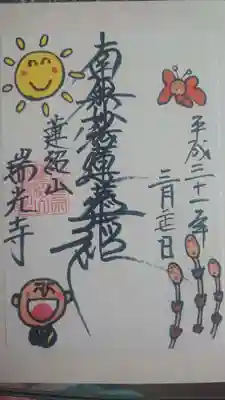 平成三十一年
三月日
南無妙法蓮華経
蓮紹山
瑞光寺